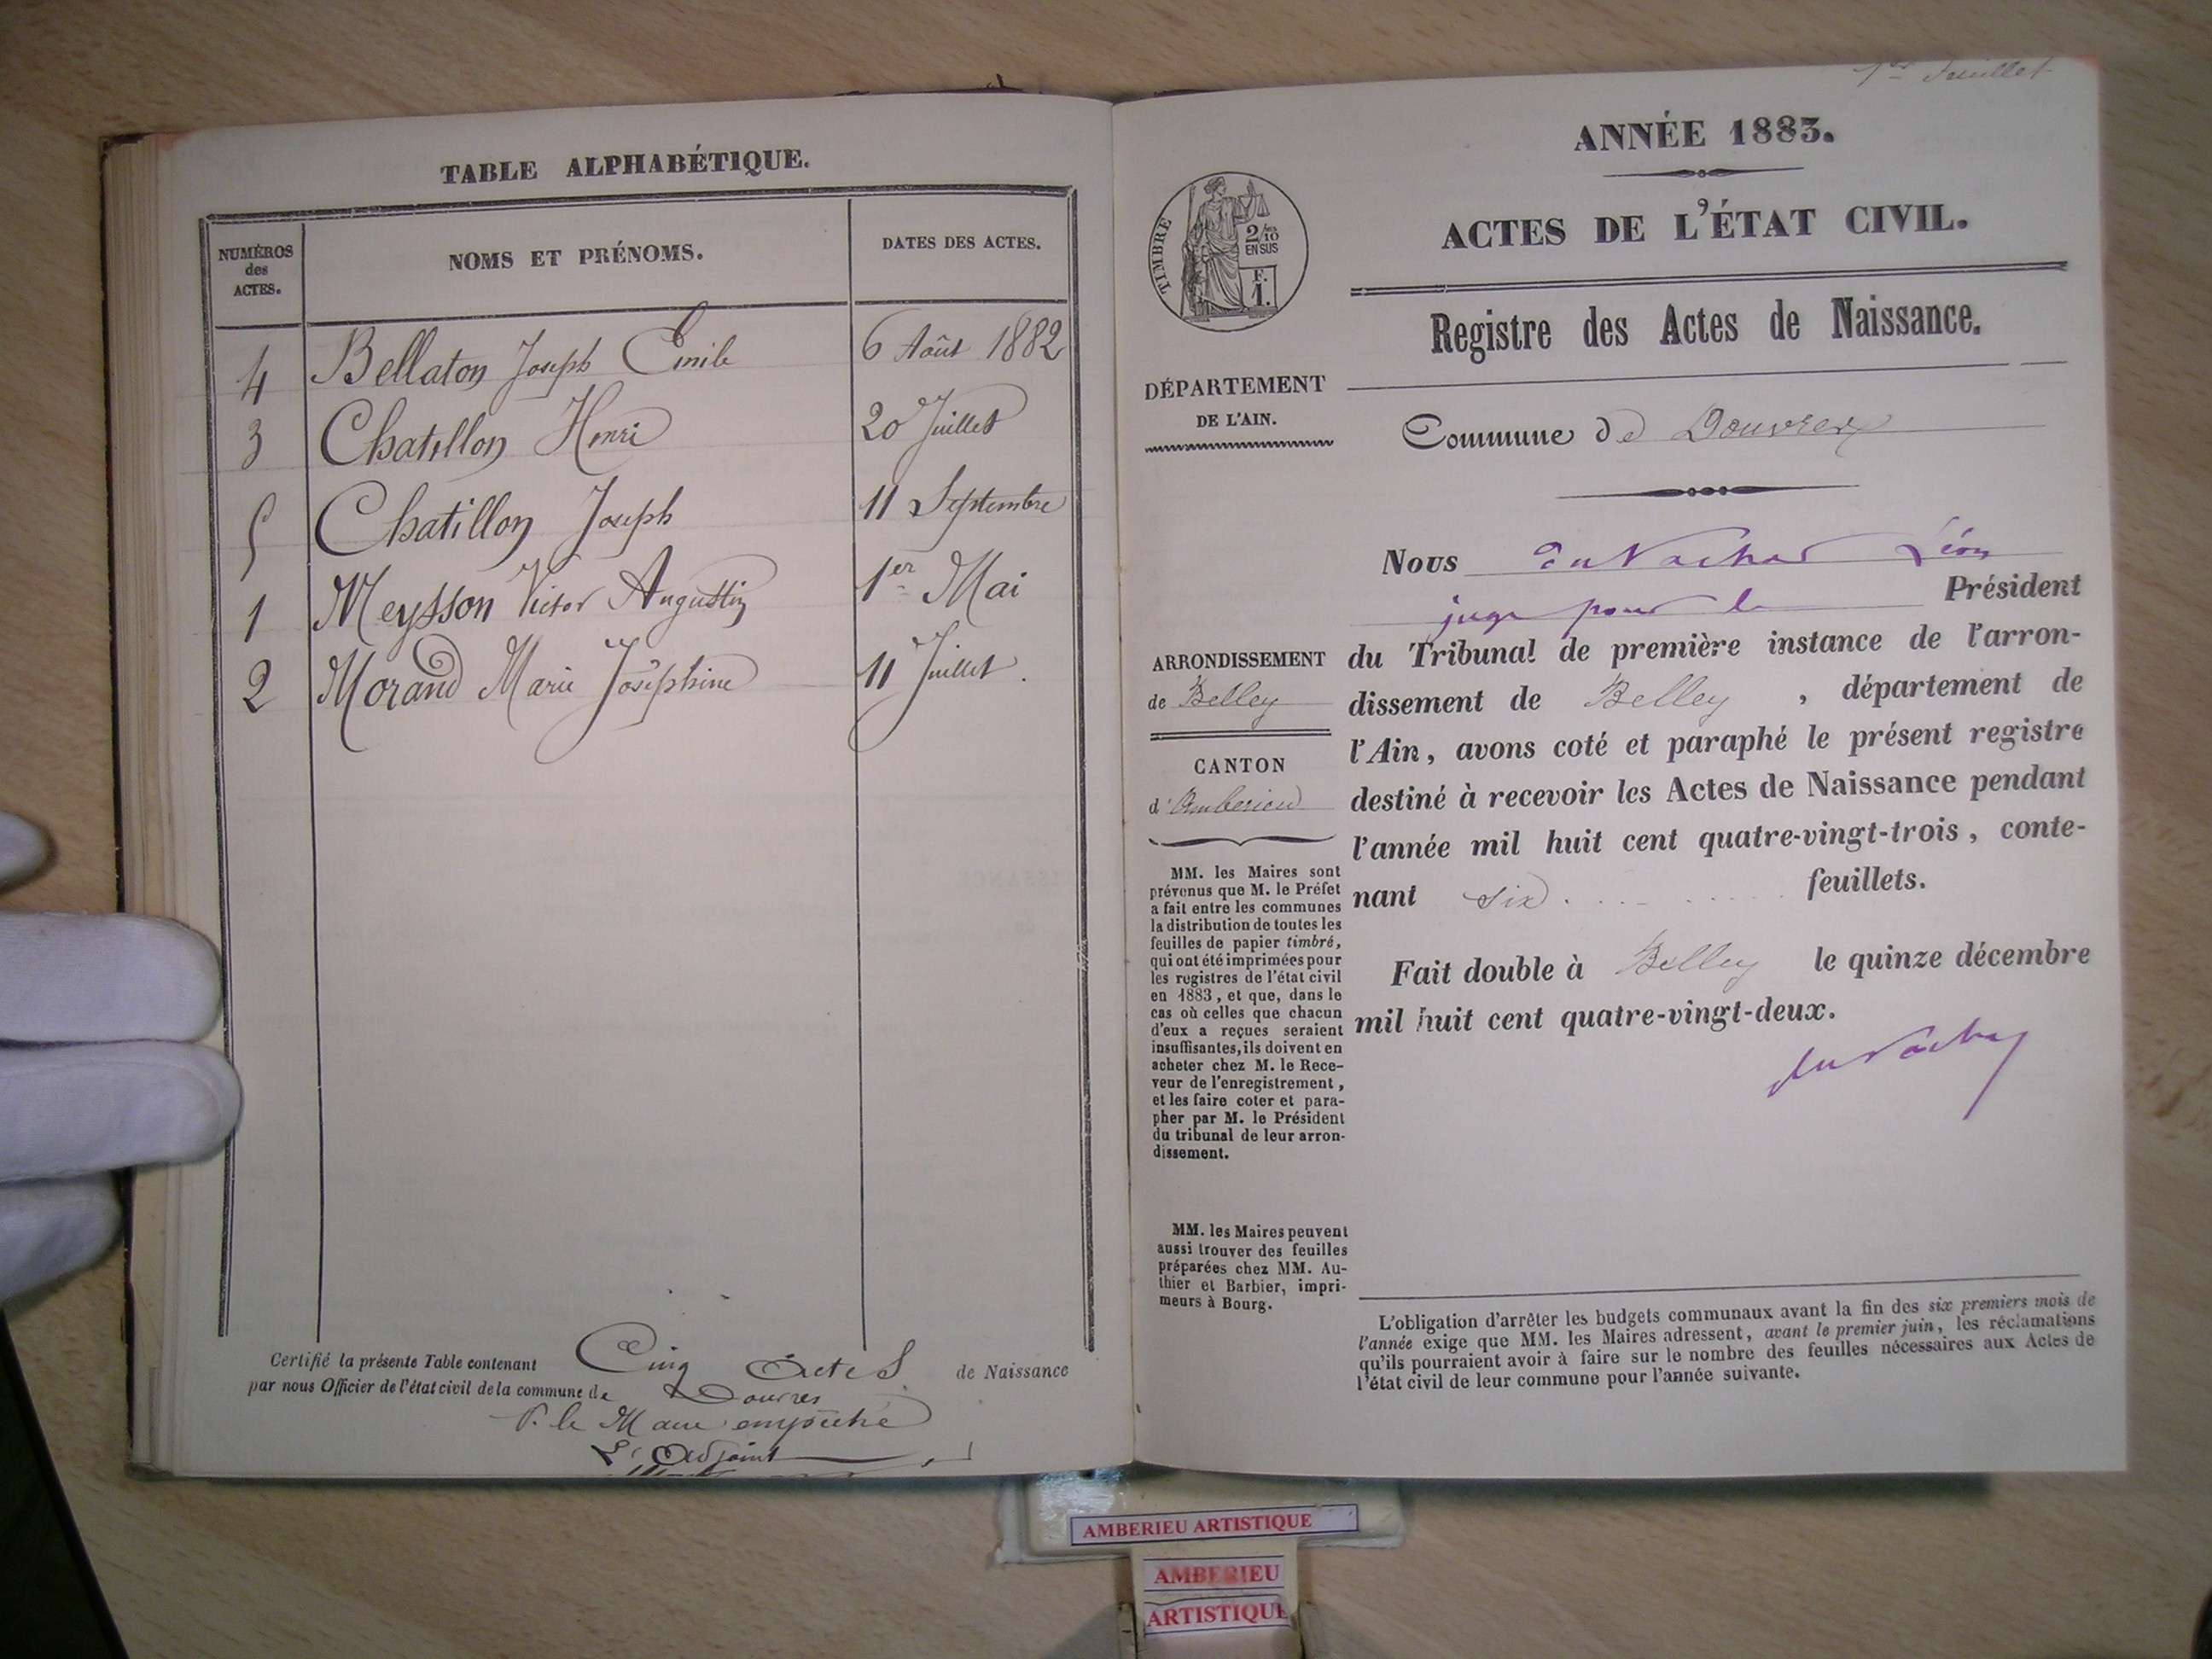 TABLE ALPHABÉTIQUE.
NUMÉROS
des
ACTES.
NOMS ET PRÉNOMS.
DATES DES ACTES.
4 Bellaton Joseph Emile 6 Août 1882
3 Chatillon Henri 20 Juillet
5 Chatillon Joseph 11 Septembre
1 Meysson Victor Augustin 1er Mai
2 Morand Marie Joséphine 11 Juillet.
Certifié la présente Table contenant Cinq Actes de Naissance
par nous Officier de l'état civil de la commune de Douvres
P. le Maire empêché
L'Adjoint
1er feuillet
ANNÉE 1883.
ACTES DE L'ÉTAT CIVIL.
TIMBRE
2/10
EN SUS
F.
1.
Registre des Actes de Naissance.
DÉPARTEMENT
DE L'AIN.
Commune de Douvres
Nous Léon
juge pour le Président
du Tribunal de première instance de l'arron-
dissement de Belley, département de
l'Ain, avons coté et paraphé le présent registre
destiné à recevoir les Actes de Naissance pendant
l'année mil huit cent quatre-vingt-trois, conte-
nant six feuillets.
Fait double à Belley le quinze décembre
mil huit cent quatre-vingt-deux.
ARRONDISSEMENT
de Belley
CANTON
d'Amberieu
MM. les Maires sont
prévenus que M. le Préfet
a fait entre les communes
la distribution de toutes les
feuilles de papier timbré,
qui ont été imprimées pour
les registres de l'état civil
en 1883, et que, dans le
cas où celles que chacun
d'eux a reçues seraient
insuffisantes, ils doivent en
acheter chez M. le Rece-
veur de l'enregistrement,
et les faire coter et para-
pher par M. le Président
du tribunal de leur arron-
dissement.
MM. les Maires peuvent
aussi trouver des feuilles
préparées chez MM. Au-
thier et Barbier, impri-
meurs à Bourg.
L'obligation d'arrêter les budgets communaux avant la fin des six premiers mois de
l'année exige que MM. les Maires adressent, avant le premier juin, les réclamations
qu'ils pourraient avoir à faire sur le nombre des feuilles nécessaires aux Actes de
l'état civil de leur commune pour l'année suivante.
AMBERIEU ARTISTIQUE
AMBERIEU
ARTISTIQUE